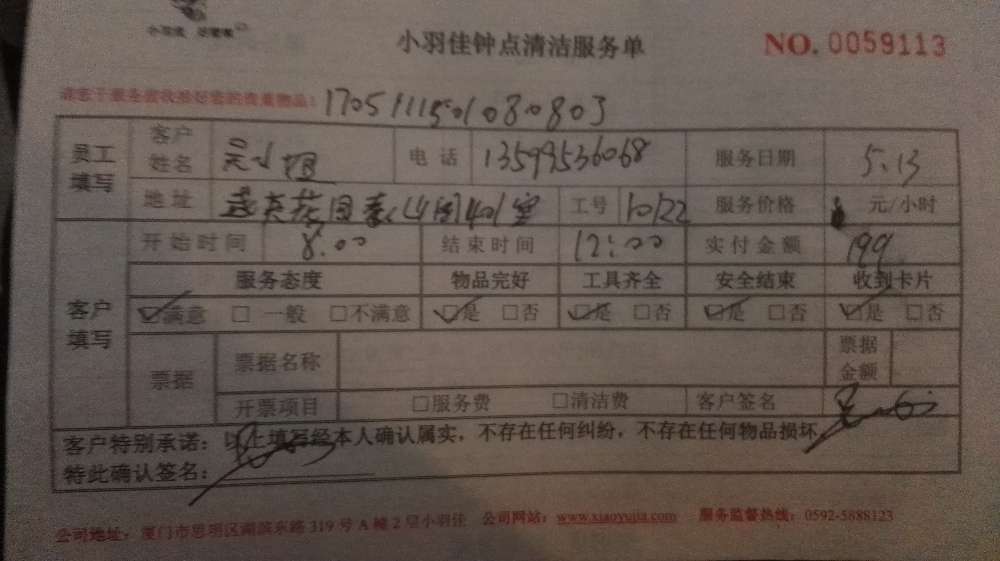 小羽佳钟点清洁服务单 NO. 0059113
17051115010830803
员工填写 客户姓名 吴小姐 电话 13599536068 服务日期 5.13
地址 401室 工号 10122 服务价格 元/小时
客户填写 开始时间 8:00 结束时间 12:00 实付金额 199
服务态度 物品完好 工具齐全 安全结束 收到卡片
☑满意 □ 一般 □不满意 ☑是 □否 ☑是 □否 ☑是 □否 ☑是 □否
票据 票据名称 票据金额
开票项目 □服务费 □清洁费 客户签名
客户特别承诺：以上填写经本人确认属实，不存在任何纠纷，不存在任何物品损坏
特此确认签名：
公司地址：厦门市思明区湖滨东路 319 号 A 幢 2 层小羽佳 公司网站：www.xiaoyujia.com 服务监督热线：0592-5888123